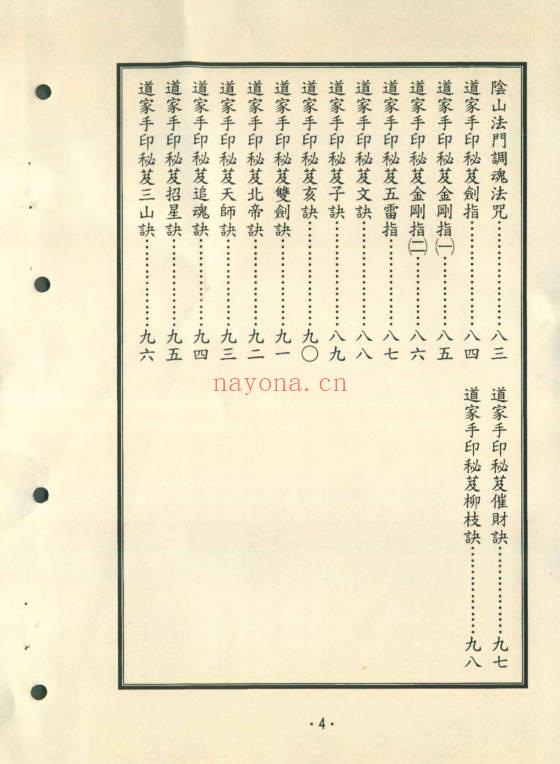 陰山法門調魂法咒……………………八三
道家手印秘芨劍指……………………八四
道家手印秘芨金剛指㈠………………八五
道家手印秘芨金剛指㈡………………八六
道家手印秘芨五雷指…………………八七
道家手印秘芨文訣……………………八八
道家手印秘芨子訣……………………八九
道家手印秘芨亥訣……………………九〇
道家手印秘芨雙劍訣…………………九一
道家手印秘芨北帝訣…………………九二
道家手印秘芨天師訣…………………九三
道家手印秘芨追魂訣…………………九四
道家手印秘芨招星訣…………………九五
道家手印秘芨三山訣…………………九六
道家手印秘芨催財訣…………………九七
道家手印秘芨柳枝訣…………………九八
nayona.cn
·4·